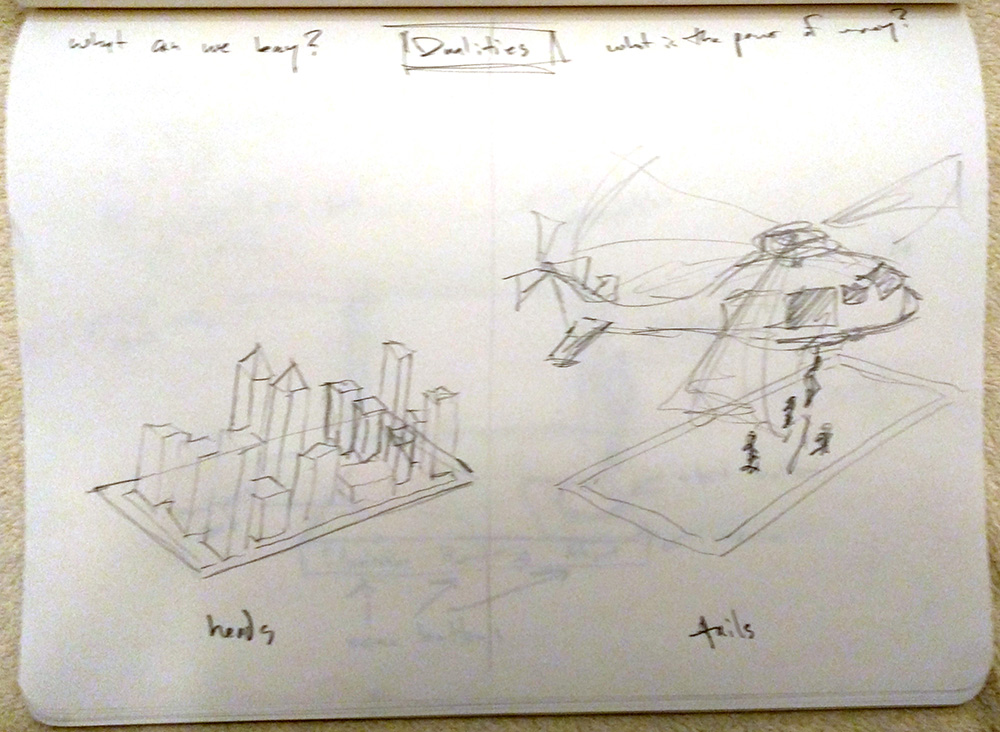 what can we buy?
Dualities
what is the power of money?
heads
tails